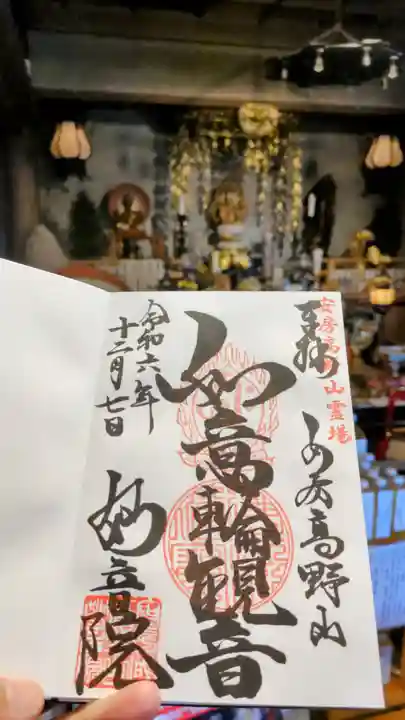 安房高野山霊場
奉拝
あわ高野山
如意輪観音
令和六年
十二月七日
妙音院